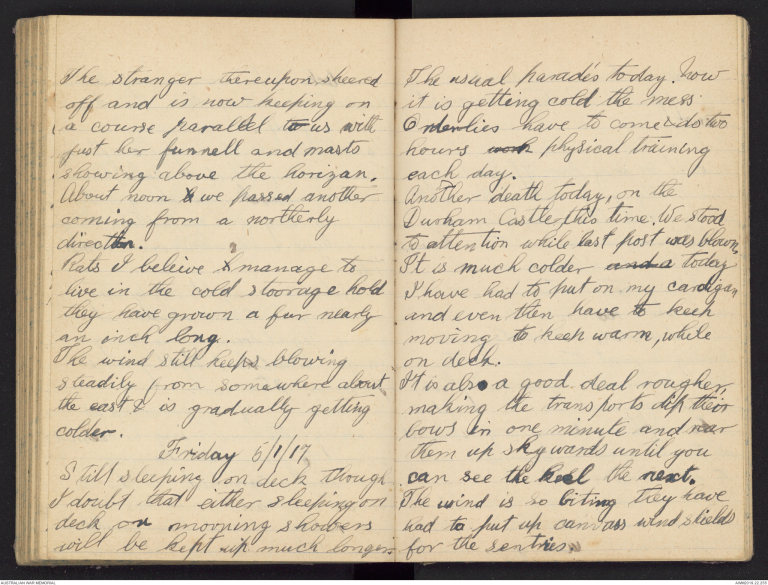 The stranger thereupon sheered
off and is now keeping on
a course parallel to us with
just her funnell and masts
showing above the horizan.
About noon we passed another
coming from a northerly
direction.
Rats I beleive manage to
live in the cold stoorage hold
they have grown a fur nearly
an inch long.
The wind still keeps blowing
steadily from somewhere about
the east & is gradually getting
colder.
Friday 5/1/17
Still sleeping on deck though
I doubt that either sleeping on
deck or morning showers
will be kept up much longer.
The usual parades today. Now
it is getting cold the mess
Orderlies have to come & do two
hours work physical training
each day.
Another death today, on the
Durham Castle this time. We stood
to attention while last post was blown.
It is much colder and a today
I have had to put on my cardigan
and even then have to keep
moving to keep warm, while
on deck.
It is also a good deal rougher,
making the transports dip their
bows in one minute and rear
them up skywards until you
can see the keel the next.
The wind is so biting they have
had to put up canvass wind shields
for the sentries.
AUSTRALIAN WAR MEMORIAL